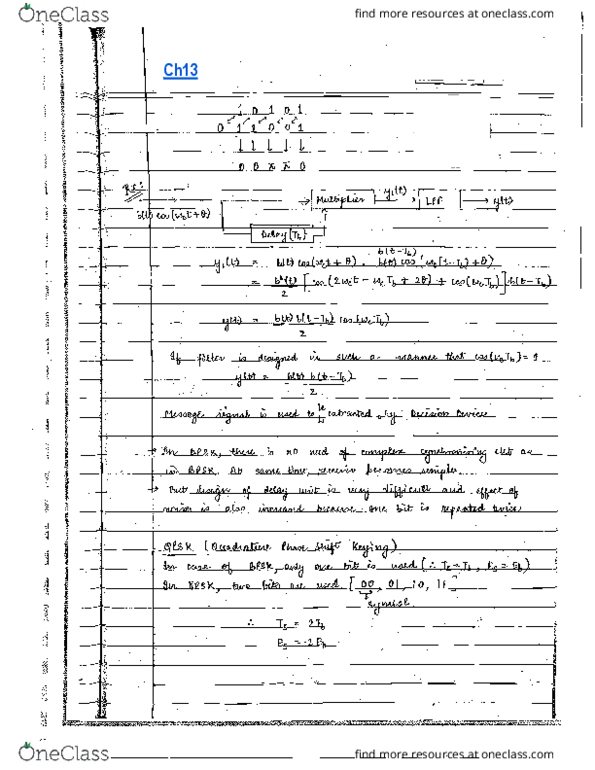 OneClass
find more resources at oneclass.com
Ch13
1 0 1 0 1
0 1 1 0 0 1
↓ ↓ ↓ ↓ ↓
0 0 π π 0
b(t) cos(ω₀t+θ)
Multiplier
y₁(t)
LPF
y(t)
Delay (Tb)
y₁(t) = b(t) cos(ω₀t + θ) .
b(t-Tb)
= [cos(2ω₀t - ω₀Tb + 2θ) + cos(ω₀Tb)] b(t-Tb)
2
y(t) = b(t) b(t-Tb) cos(ω₀Tb)
2
If filter is designed in such a manner that cos(ω₀Tb) = 1
y(t) = b(t) b(t-Tb)
2
Message signal is used to be extracted by Decision Device
→ In DPSK, there is no need of complex ckt as
in BPSK. At same time, receiver becomes simpler.
→ But design of delay unit is very difficult and effect of
noise is also increased because one bit is repeated twice
QPSK (Quadrature Phase Shift Keying)
In case of BPSK, only one bit is used (∴ Ts = Tb, Es = Eb)
In QPSK, two bits are used [00, 01, 10, 11
symbol
∴ Ts = 2Tb
Es = 2Eb
OneClass
find more resources at oneclass.com